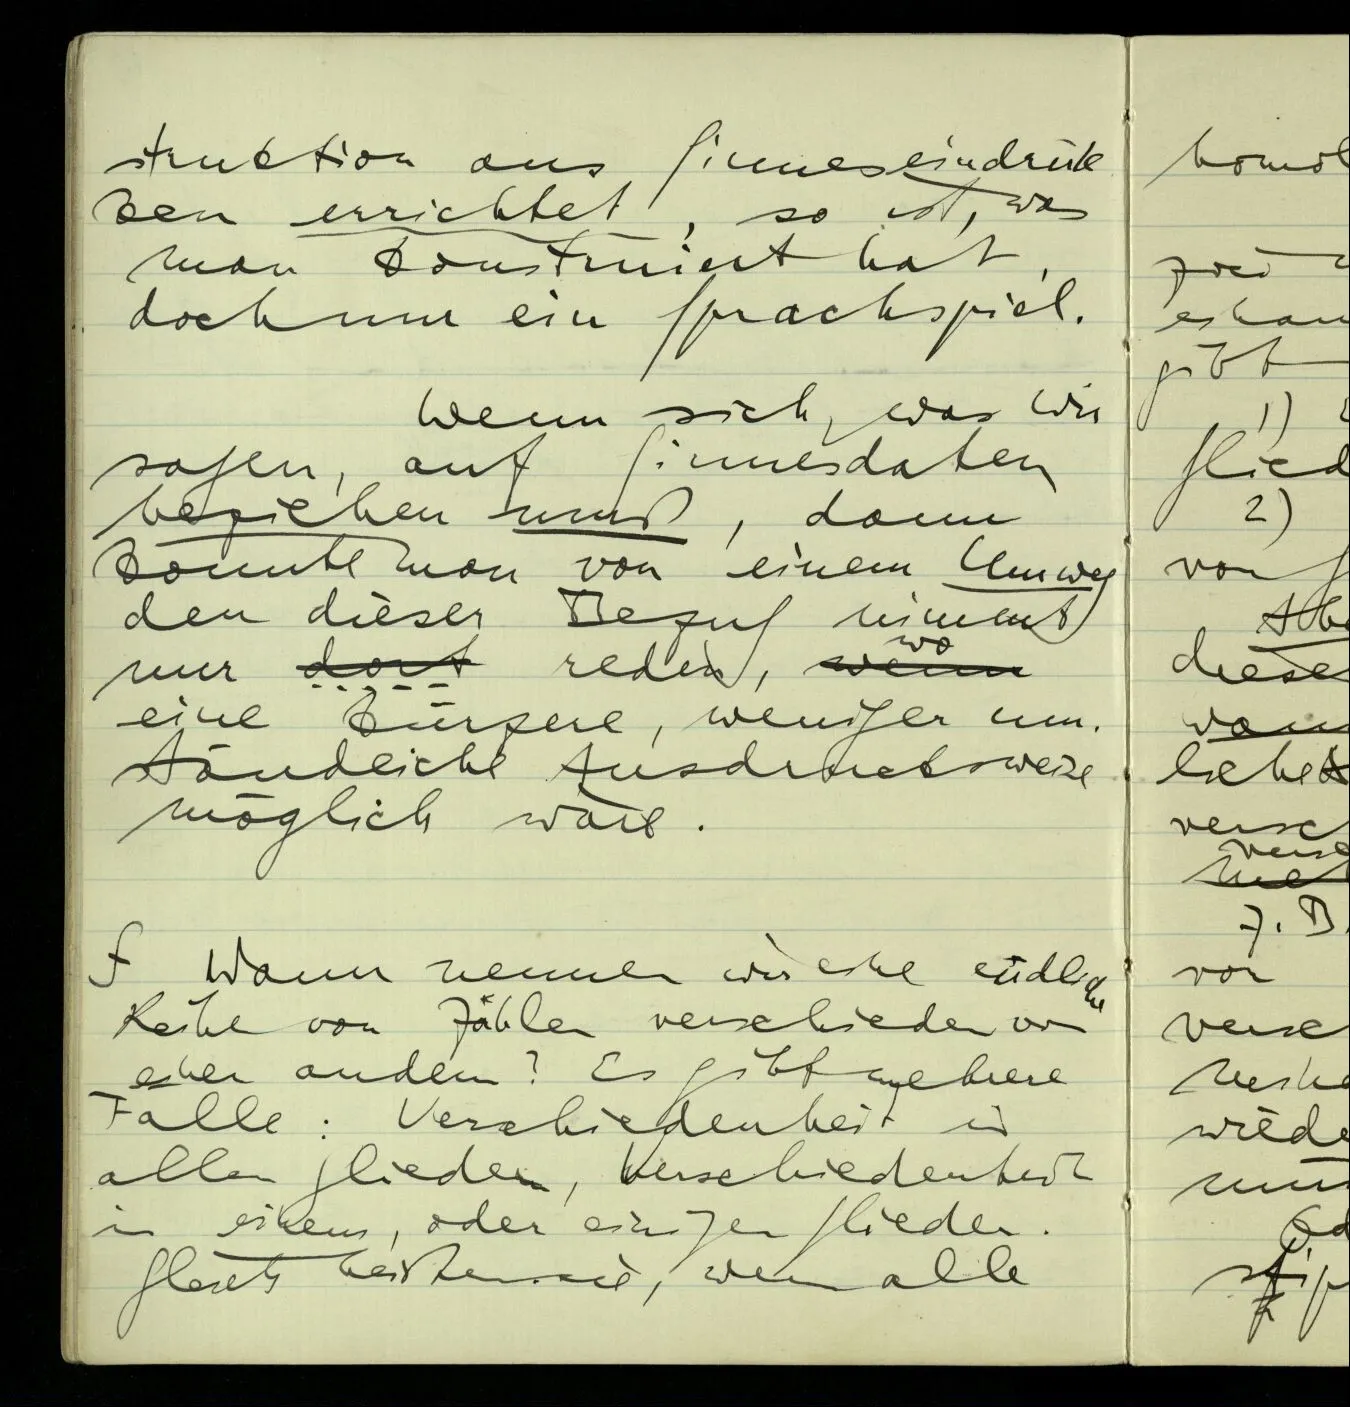 struktion aus Sinneseindrük
ken errichtet, so ist, was
man konstruiert hat,
doch nur ein Sprachspiel.
Wenn sich, was wir
sagen, auf Sinnesdaten
beziehen muß, dann
könnte man von einem Umweg
den dieser Bezug nimmt
nur dort reden, wenn wo
eine kürzere, weniger um-
ständliche Ausdrucksweise
möglich wäre.
Wann nennen wir eine endliche
Reihe von Zahlen verschieden von
einer andern? Es gibt mehrere
Fälle: Verschiedenheit in
allen Gliedern, Verschiedenheit
in einem, oder einigen Gliedern.
Gleich heißen sie, wenn alle
zwei
gibt
1)
Glied
2)
von
diese
z.B.
vor